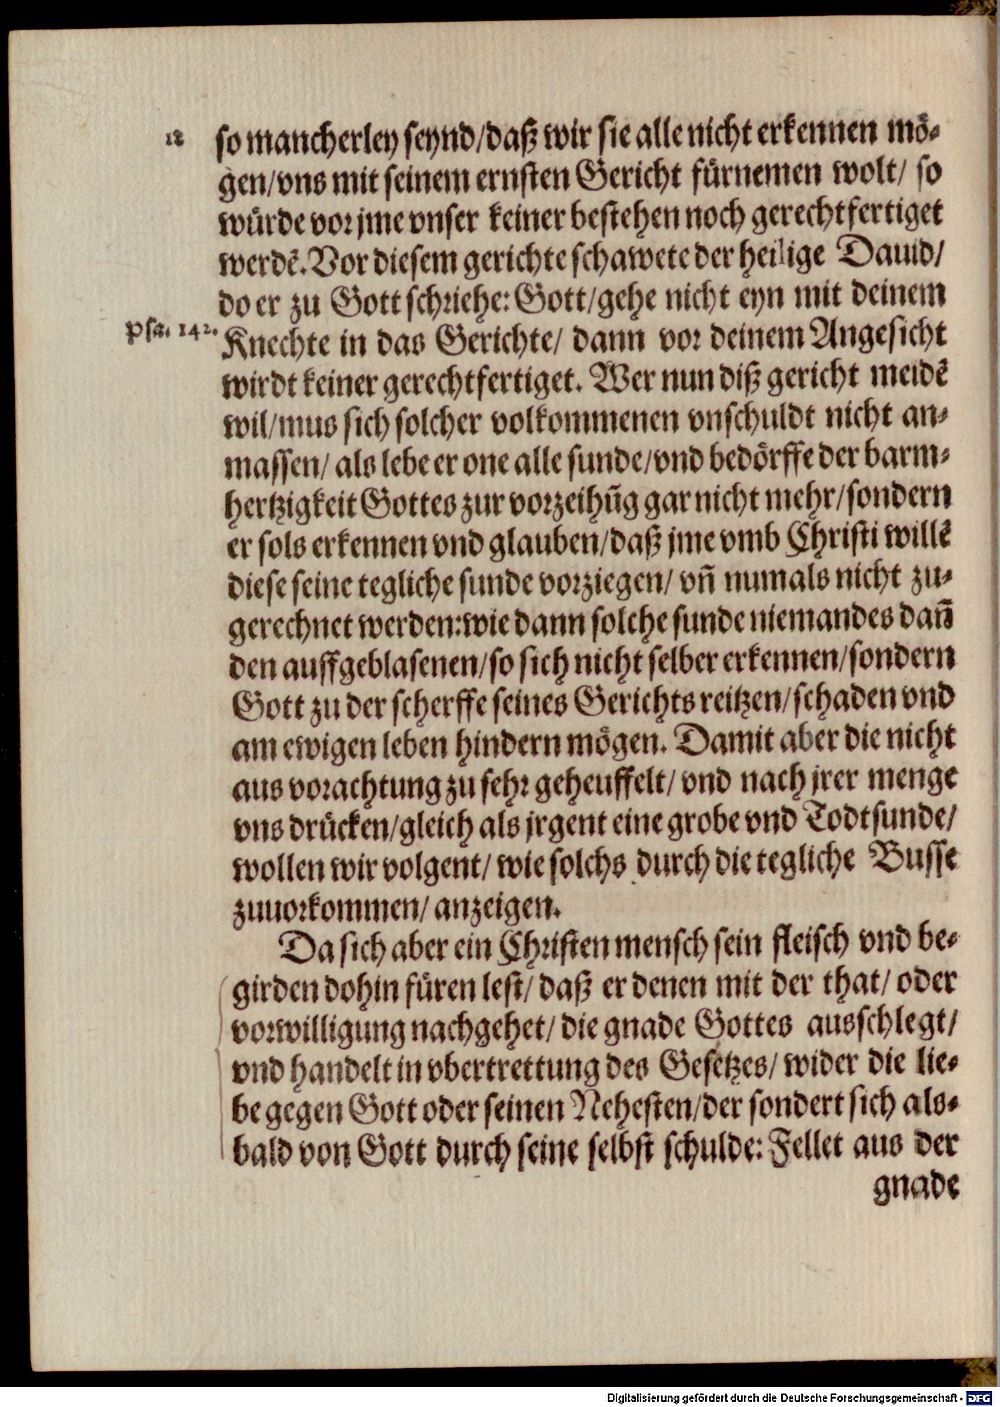 12 so mancherley seynd/daß wir sie alle nicht erkennen mö-
gen/vns mit seinem ernsten Gericht fürnemen wolt/ so
würde vor jme vnser keiner bestehen noch gerechtfertiget
werdē. Vor diesem gerichte schawete der heilige Dauid/
do er zu Gott schriehe: Gott/gehe nicht eyn mit deinem
Psa. 142. Knechte in das Gerichte/ dann vor deinem Angesicht
wirdt keiner gerechtfertiget. Wer nun diß gericht meidē
wil/mus sich solcher volkommenen vnschuldt nicht an-
massen/ als lebe er one alle sunde/vnd bedörffe der barm-
hertzigkeit Gottes zur vorzeihūg gar nicht mehr/sondern
er sols erkennen vnd glauben/daß jme vmb Christi willē
diese seine tegliche sunde vorziegen/ vñ numals nicht zu-
gerechnet werden: wie dann solche sunde niemandes dañ
den auffgeblasenen/so sich nicht selber erkennen/sondern
Gott zu der scherffe seines Gerichts reitzen/schaden vnd
am ewigen leben hindern mögen. Damit aber die nicht
aus vorachtung zu sehr geheuffelt/ vnd nach jrer menge
vns drücken/gleich als jrgent eine grobe vnd Todtsunde/
wollen wir volgent/ wie solchs durch die tegliche Busse
zuuorkommen/ anzeigen.
Da sich aber ein Christen mensch sein fleisch vnd be-
girden dohin füren lest/ daß er denen mit der that/ oder
vorwilligung nachgehet/ die gnade Gottes ausschlegt/
vnd handelt in vbertrettung des Gesetzes/ wider die lie-
be gegen Gott oder seinen Nehesten/der sondert sich als-
bald von Gott durch seine selbst schulde: Fellet aus der
gnade
Digitalisierung gefördert durch die Deutsche Forschungsgemeinschaft - DFG